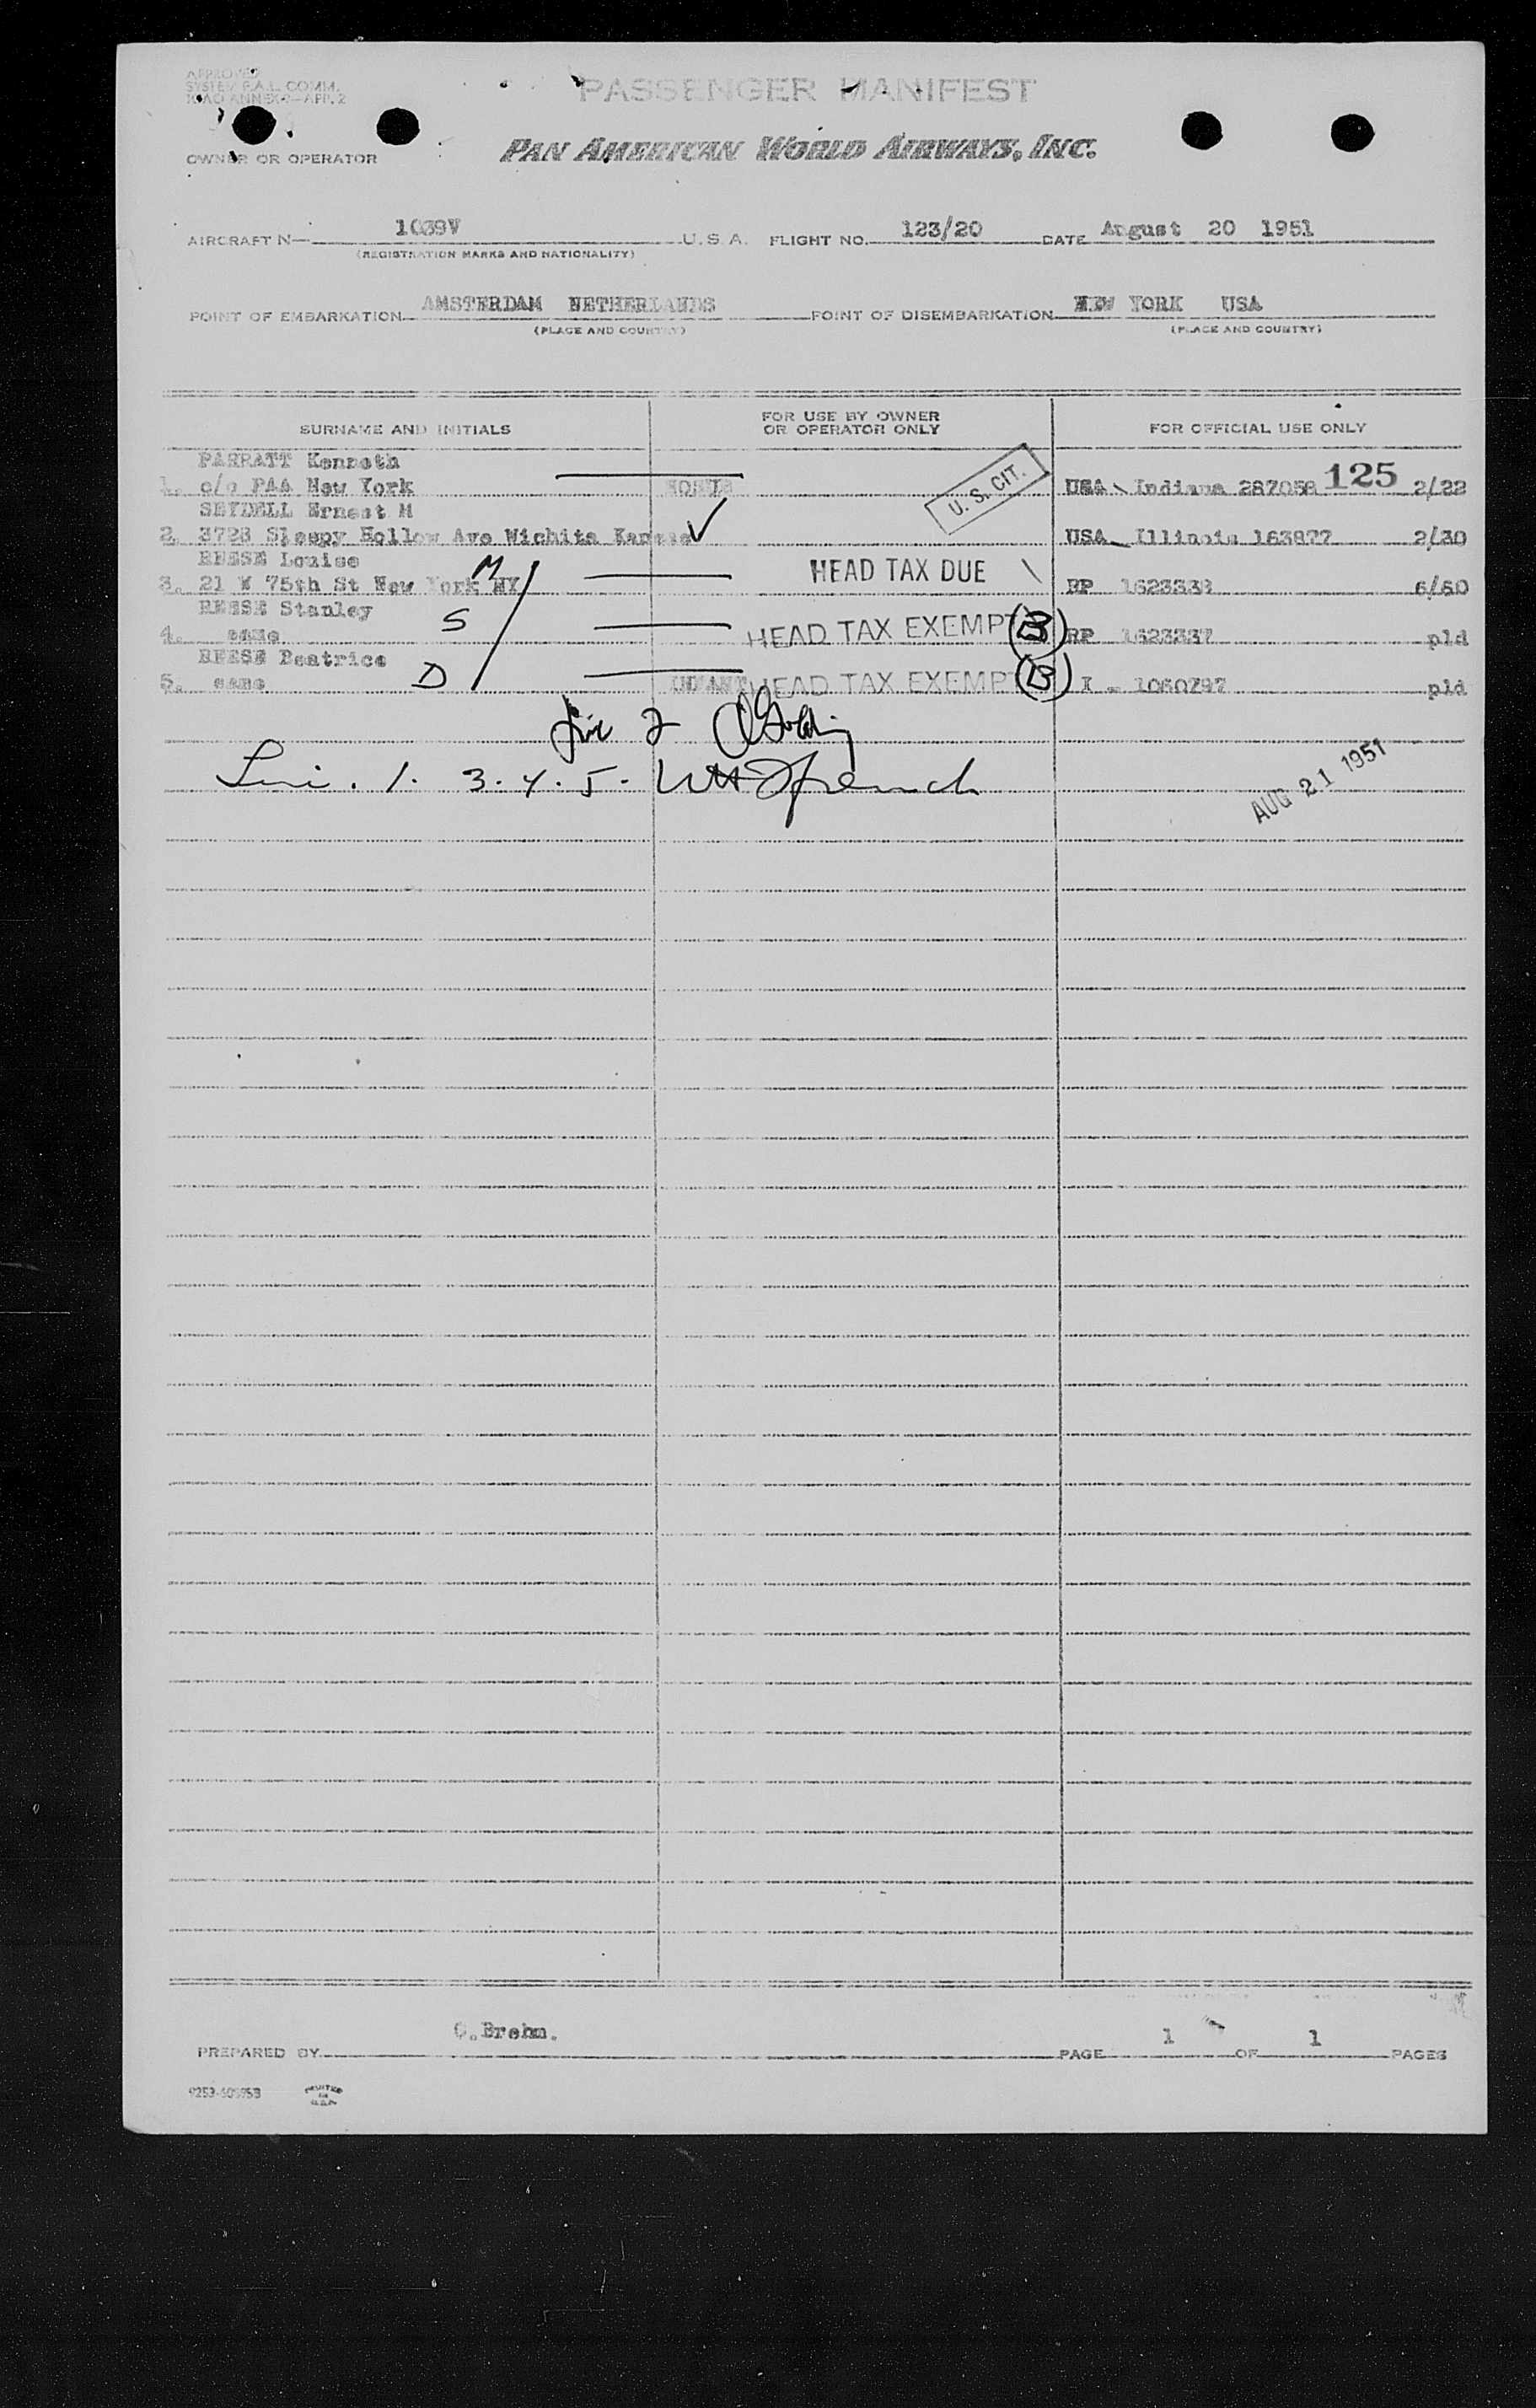 APPROVED
SYSTEM F.A.L. COMM.
ICAO ANNEX 9—APP. 2
PASSENGER MANIFEST
OWNER OR OPERATOR PAN AMERICAN WORLD AIRWAYS, INC.
AIRCRAFT N— 1039V U. S. A. FLIGHT NO. 123/20 DATE August 20 1951
(REGISTRATION MARKS AND NATIONALITY)
POINT OF EMBARKATION AMSTERDAM NETHERLANDS POINT OF DISEMBARKATION NEW YORK USA
(PLACE AND COUNTRY) (PLACE AND COUNTRY)
SURNAME AND INITIALS FOR USE BY OWNER OR OPERATOR ONLY FOR OFFICIAL USE ONLY
PARRATT Kenneth
1. c/o PAA New York U. S. CIT. USA Indiana 287058 125 2/22
SEYDELL Ernest M
2. 3723 Sleepy Hollow Ave Wichita Kansas ✓ USA Illinois 163877 2/30
REESE Louise
3. 21 W 75th St New York NY M HEAD TAX DUE RP 1623338 6/50
REESE Stanley
4. same S HEAD TAX EXEMPT B RP 1623337 pld
REESE Beatrice
5. same D INFANT HEAD TAX EXEMPT B I - 1060797 pld
Line 2
1. 3. 4. 5. French
AUG 21 1951
PREPARED BY C.Brehm. PAGE 1 OF 1 PAGES
PRINTED
IN
U.S.A.